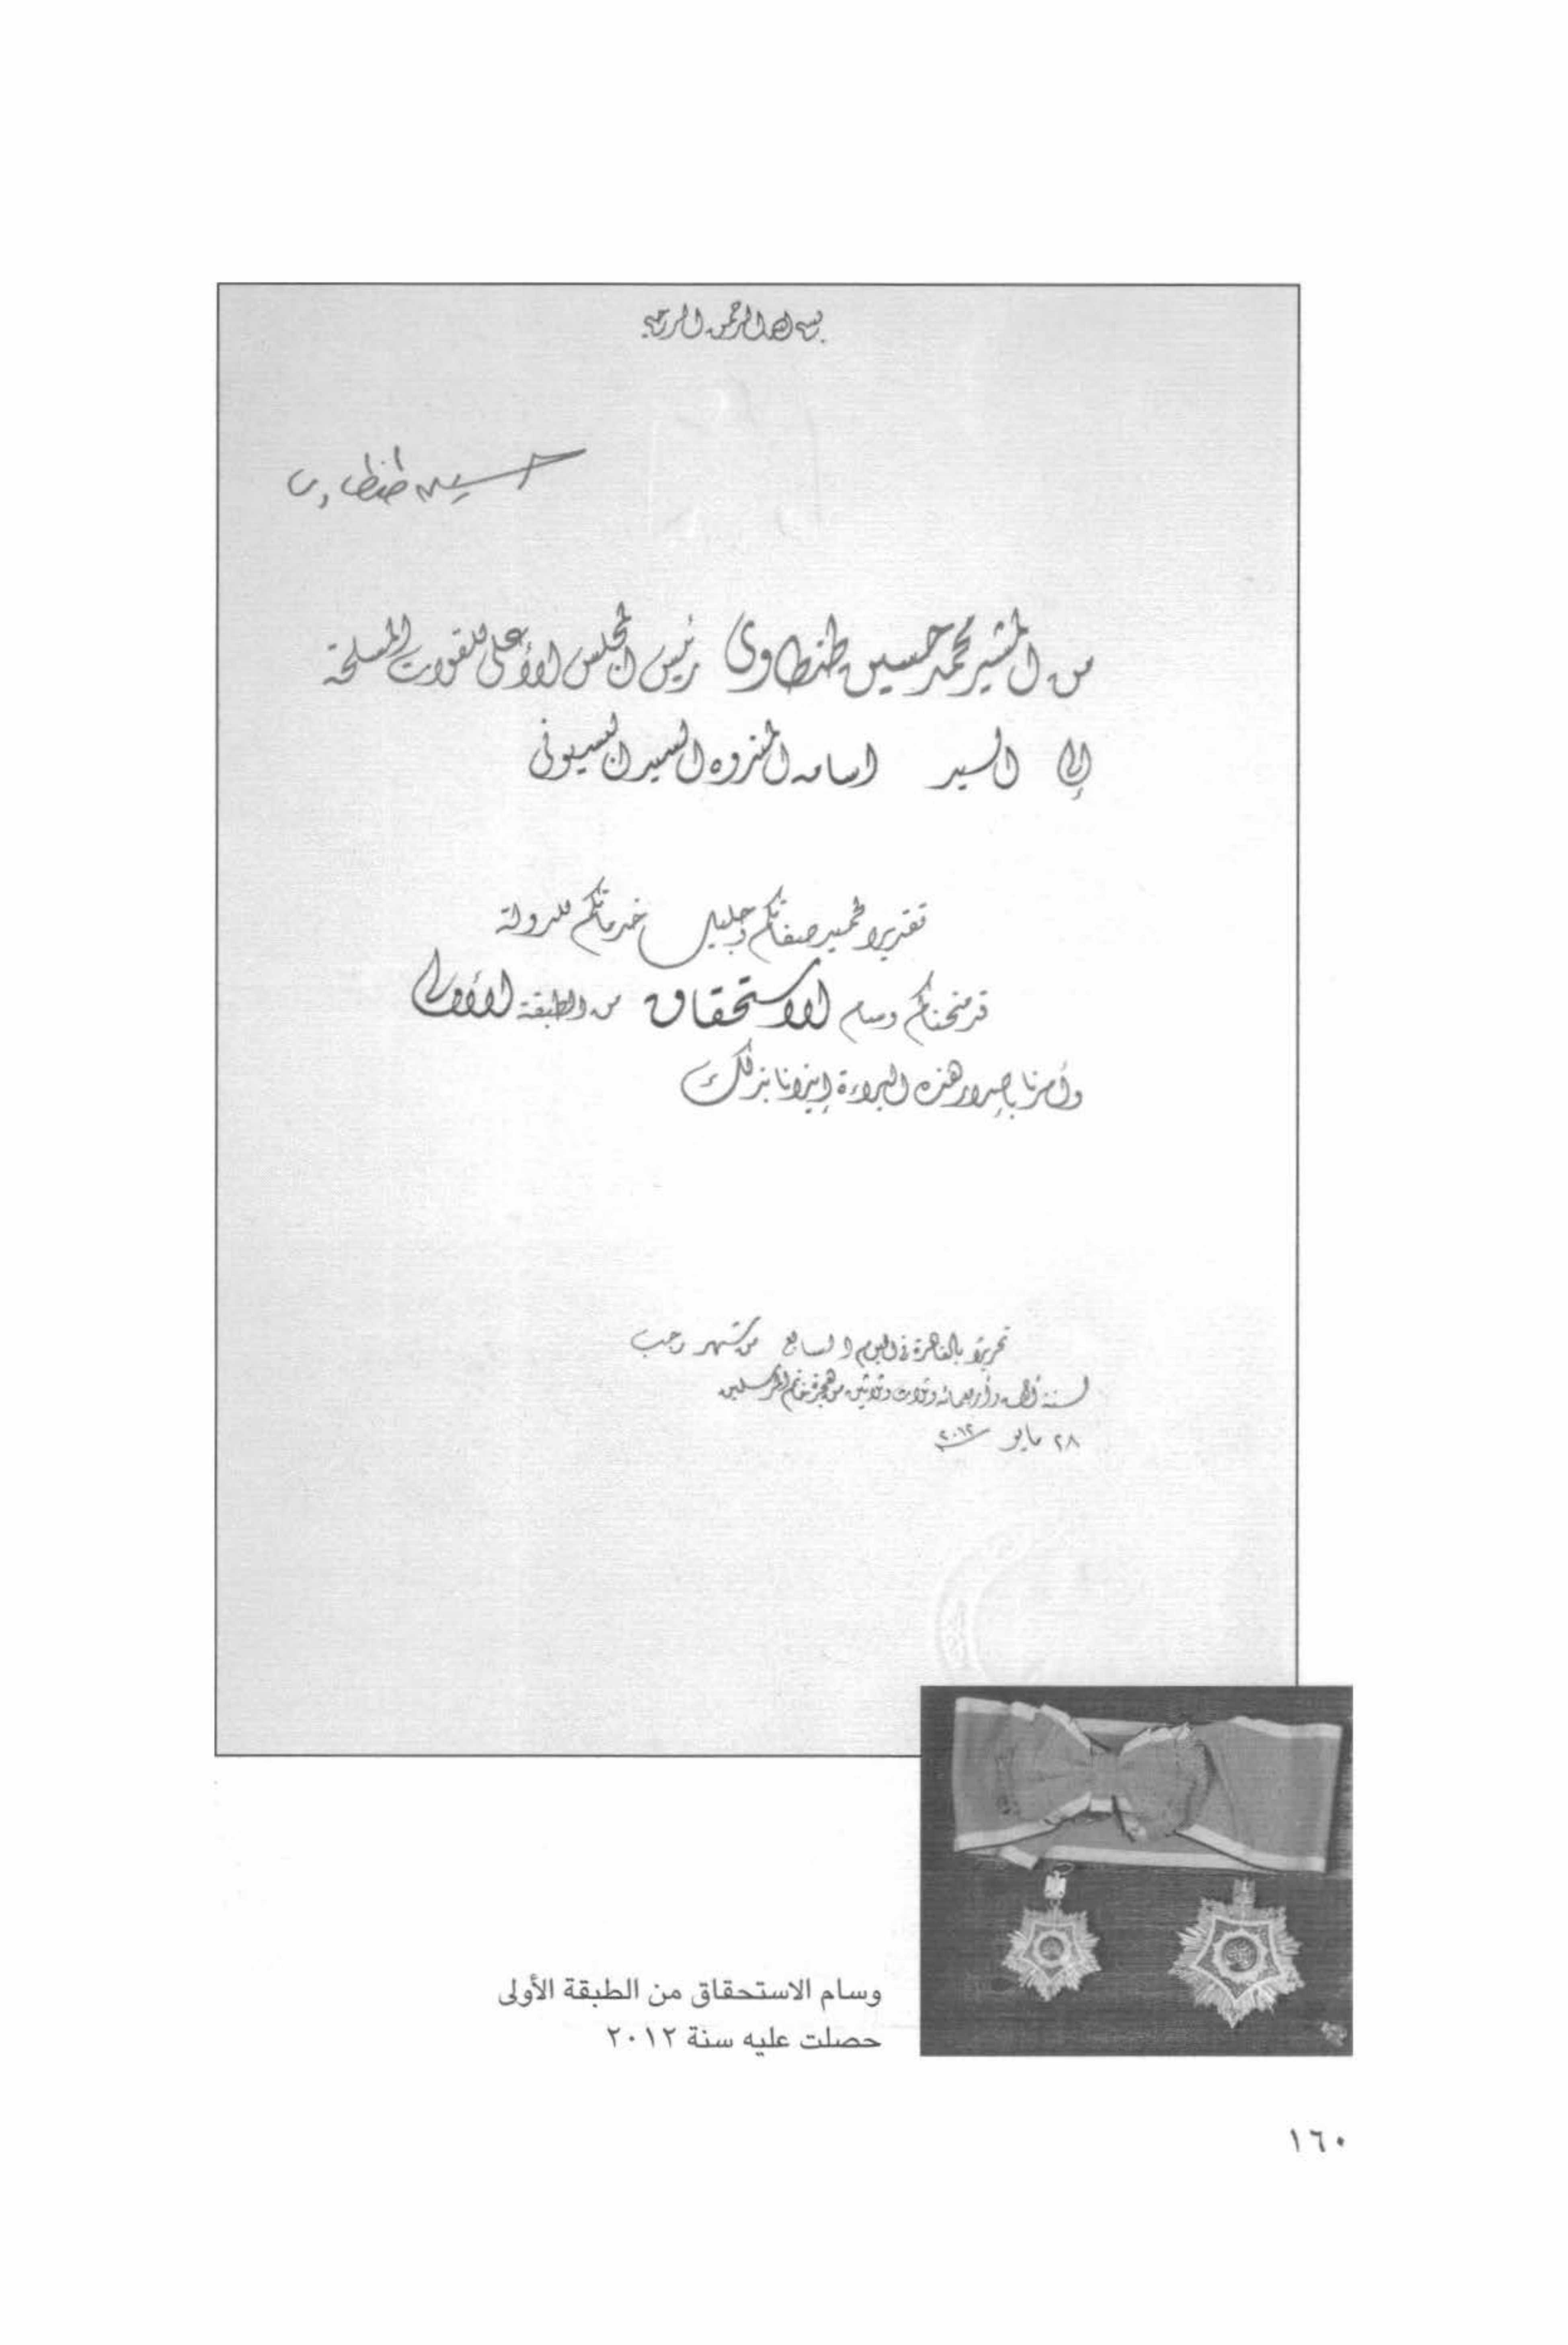 بسم الله الرحمن الرحيم
حسين طنطاوى
من المشير محمد حسين طنطاوى رئيس المجلس الأعلى للقوات المسلحة
إلى السيد اسامه المنزوه السيد البسيونى
تقديرا لحميد صفاتكم وجليل خدماتكم للدولة
قد منحناكم وسام الاستحقاق من الطبقة الأولى
وأمرنا بإصدار هذه البراءة إيذانا بذلك
تحريرا بالقاهرة فى اليوم السابع من شهر رجب
لسنة ألف وأربعمائه وثلاث وثلاثين من هجرة خاتم المرسلين
٢٨ مايو ٢٠١٢
وسام الاستحقاق من الطبقة الأولى
حصلت عليه سنة ٢٠١٢
١٦٠